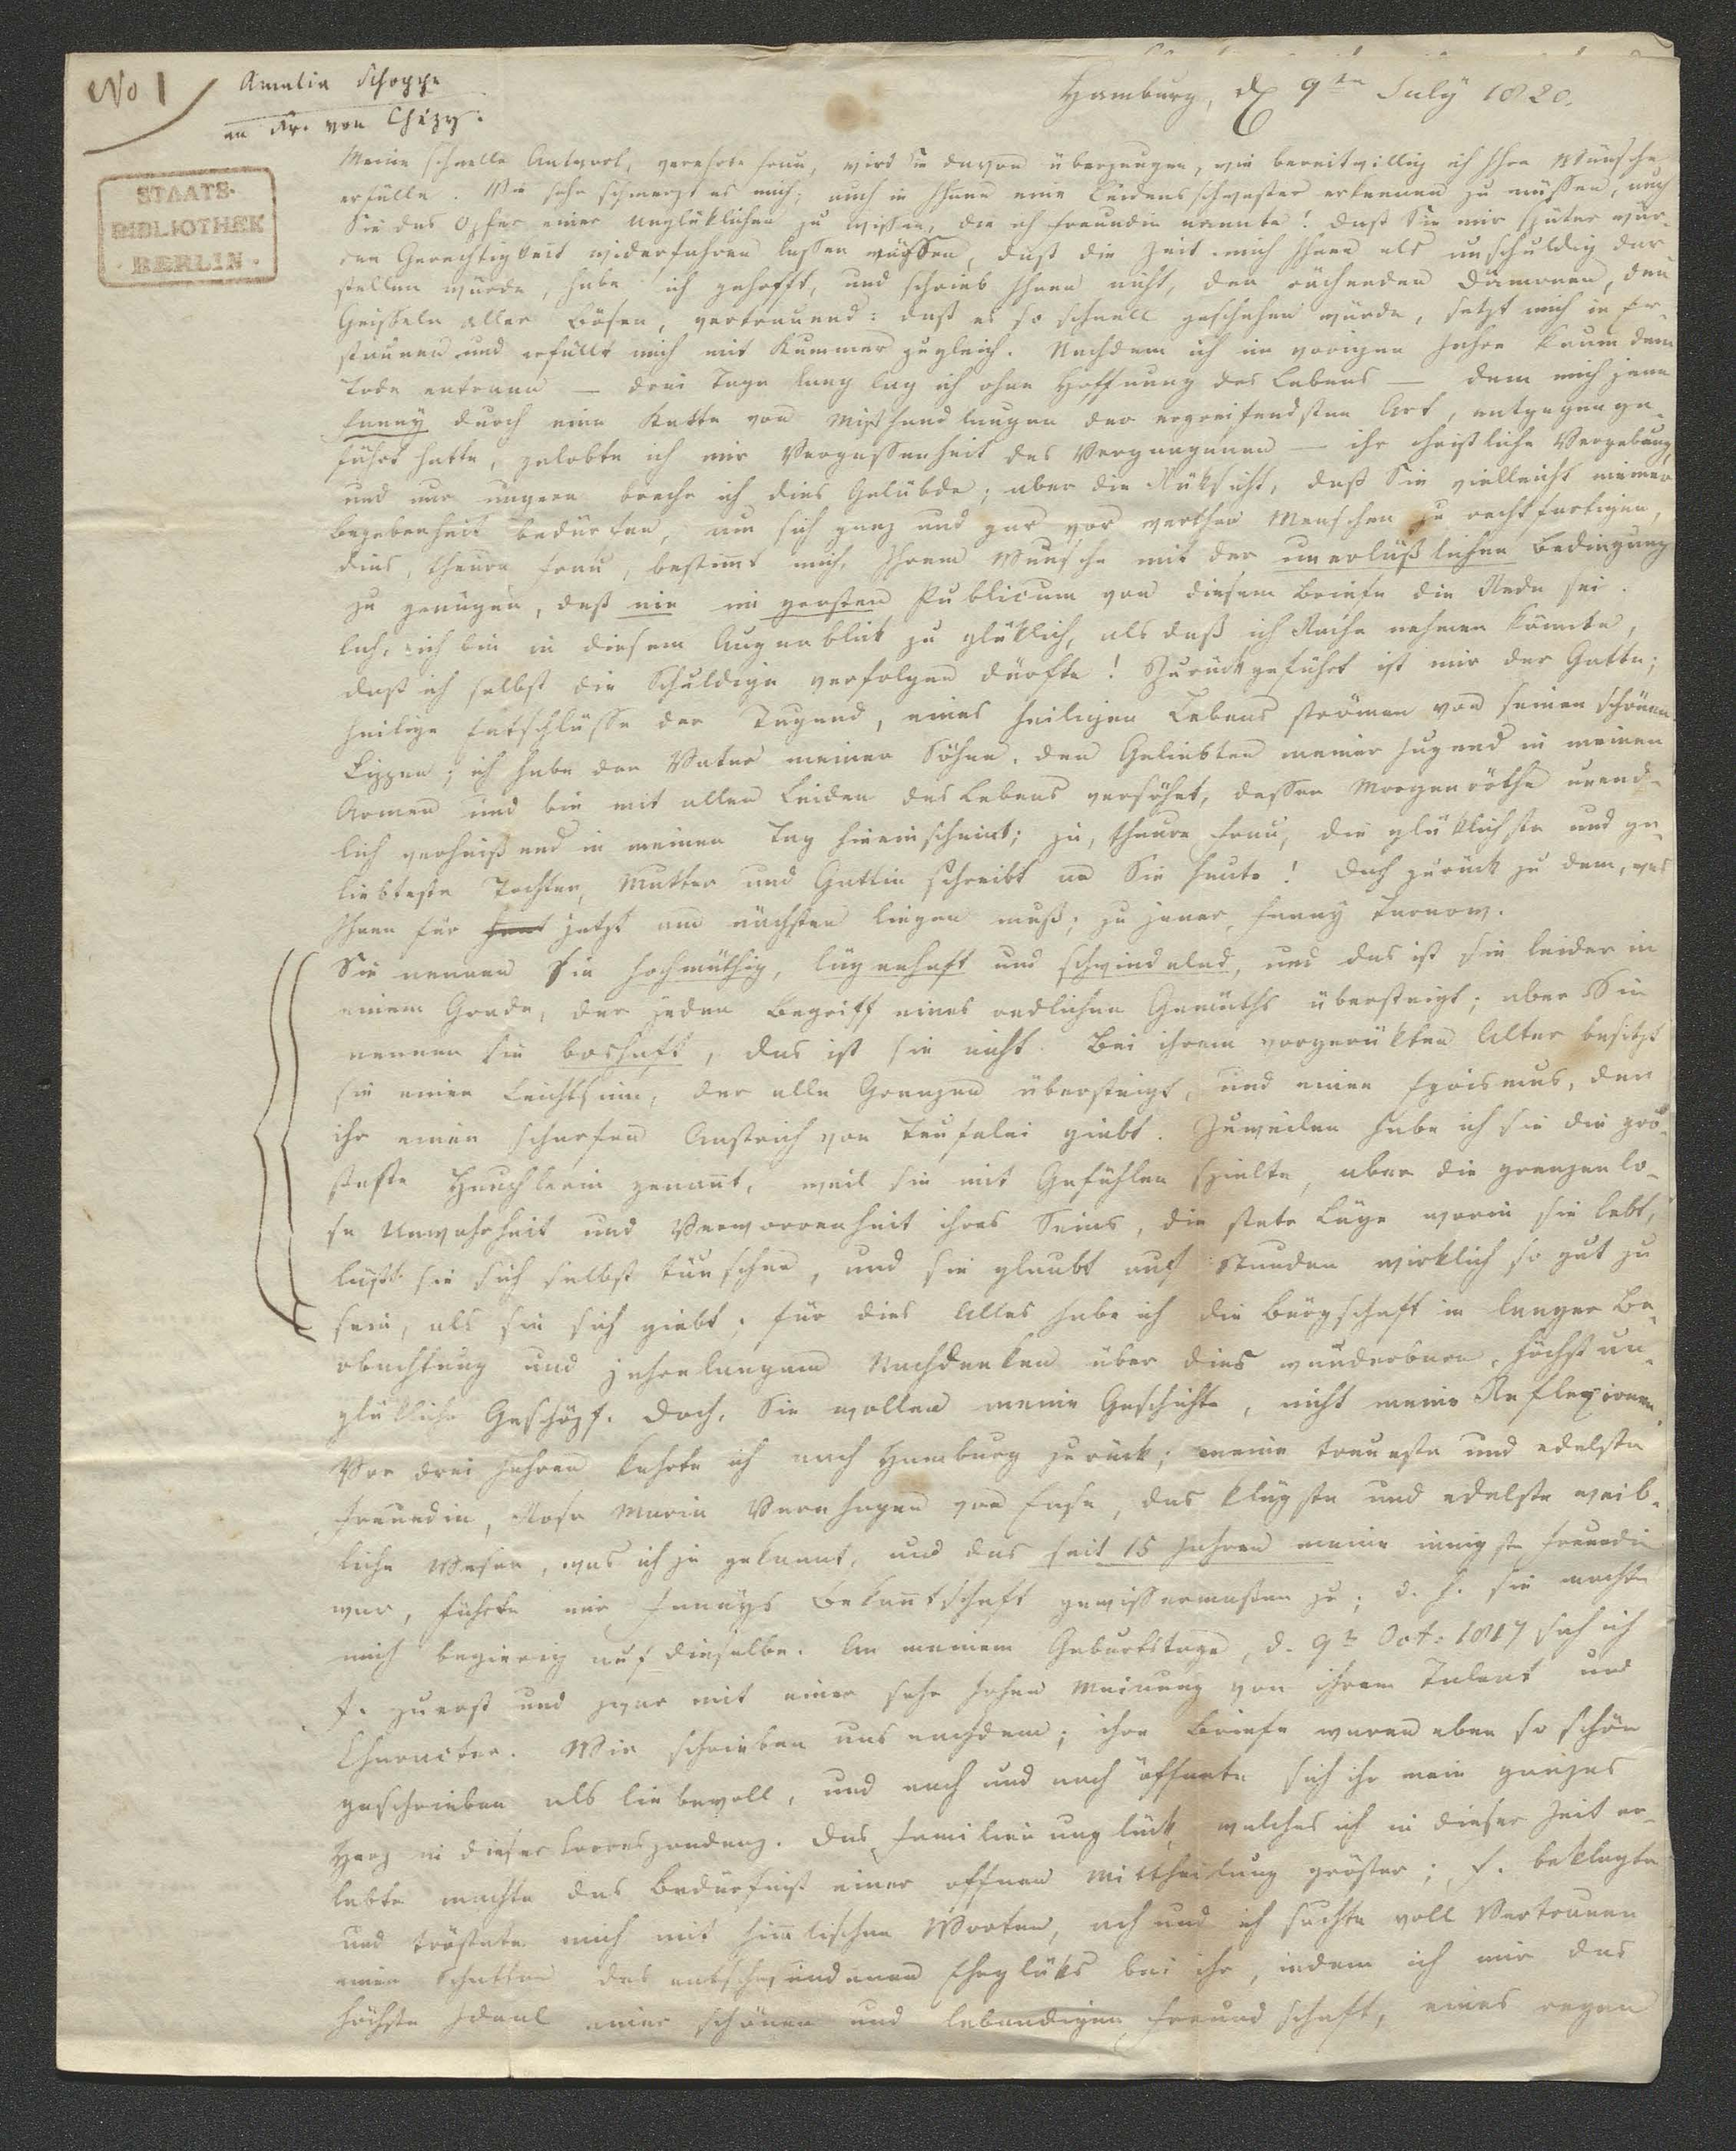 No 1
Amalia Schoppe
an Fr. von Chezy.
STAATS-
BIBLIOTHEK
· BERLIN ·
Hamburg, d. 9ten July 1820.
Meine schnelle Antwort, verehrte Frau, wird Sie davon überzeugen, wie bereitwillig ich Ihre Wünsche
erfülle. Wie sehr schmerzt es mich, auch in Ihnen eine Leidensschwester erkennen zu müssen, auch
Sie das Opfer einer Unglüklichen zu wissen, die ich Freundin nannte! daß Sie mir später wür-
den Gerechtigkeit widerfahren lassen müssen, daß die Zeit mich Ihnen als unschuldig dar
stellen würde, habe ich gehofft, und schrieb Ihnen nicht, den rächenden Dämonen, den
Geisseln aller Bösen, vertrauend: daß es so schnell geschehen würde, setzt mich in Er-
staunen und erfüllt mich mit Kummer zugleich. Nachdem ich im vorigen Jahre kaum dem
Tode entrann — drei Tage lang lag ich ohne Hoffnung des Lebens — dem mich jene
Fanny durch eine Kette von Mißhandlungen der ergreifendsten Art, entgegenge-
führt hatte, gelobte ich mir Vergessenheit des Vergangenen — ihr christliche Vergebung,
und nur ungern breche ich dies Gelübde; aber die Rüksicht, daß Sie vielleicht meiner
Begebenheit bedürfen, um sich ganz und gar vor werthen Menschen zu rechtfertigen,
dies, theure Frau, bestimt mich, Ihrem Wunsche mit der unerläßlichen Bedingung
zu genügen, daß nie im großen Publicum von diesem Briefe die Rede sei.
Ach, ich bin in diesem Augenblick zu glüklich, als daß ich Rache nehmen könnte,
daß ich selbst die Schuldige verfolgen dürfte! Zurückgeführt ist mir der Gatte;
heilige Entschlüsse der Tugend, eines heiligen Lebens strömen von seinen schönen
Lippen; ich habe den Vater meiner Söhne, den Geliebten meiner Jugend in meinen
Armen und bin mit allen Leiden des Lebens versöhnt, dessen Morgenröthe unend-
lich verheißend in meinen Tag hineinscheint; ja, theure Frau, die glüklichste und ge-
liebteste Tochter, Mutter und Gattin schreibt an Sie heute! Doch zurück zu dem, was
Ihnen für jetzt am nächsten liegen muß; zu jener Fanny Tarnow.
Sie nennen sie hochmüthig, lügenhaft und schwindelnd, und das ist sie leider in
einem Grade, der jeden Begriff eines redlichen Gemüths übersteigt; aber Sie
nennen sie boshaft, das ist sie nicht. Bei ihrem vorgerükten Alter besitzt
sie einen Leichtsinn, der alle Grenzen übersteigt, und einen Egoismus, der
ihr einen scharfen Anstrich von Teufelei giebt. Zuweilen habe ich sie die grö-
steste Heuchlerin genannt, weil sie mit Gefühlen spielte, aber die grenzenlo-
se Unwahrheit und Verworrenheit ihres Seins, die stete Lüge worin sie lebt,
läßt sie sich selbst täuschen, und sie glaubt auf Stunden wirklich so gut zu
sein, als sie sich giebt; für dies Alles habe ich die Bürgschaft in langer Be-
obachtung und jahrelangem Nachdenken über dies wunderbare, höchst un-
glükliche Geschöpf. Doch, Sie wollen meine Geschichte, nicht meine Reflexionen.
Vor drei Jahren kehrte ich nach Hamburg zurück; meine treueste und edelste
Freundin, Rosa Maria Varnhagen von Ense, das klügste und edelste weib-
liche Wesen, was ich je gekannt, und das seit 15 Jahren meine innigste Freundin
war, führte mir Fannys Bekantschaft gewissermaßen zu; d. h. sie machte
mich begierig auf dieselbe. An meinem Geburtstage, d. 9t Oct: 1817 sah ich
F. zuerst und zwar mit einer sehr hohen Meinung von ihrem Talent und
Character. Wir schrieben uns nachdem; ihre Briefe waren eben so schön
geschrieben als liebevoll, und nach und nach öffnete sich ihr mein ganzes
Herz in dieser Correspondenz. Das Familienunglück, welches ich in dieser Zeit er-
lebte machte das Bedürfniß einer offnen Mittheilung größer; F. beklagte
und tröstete mich mit himlischen Worten, ach und ich suchte voll Vertrauen
einen Schatten des entschwundenen Eheglüks bei ihr, indem ich mir das
höchste Ideal einer schönen und lebendigen Freundschaft, eines regen